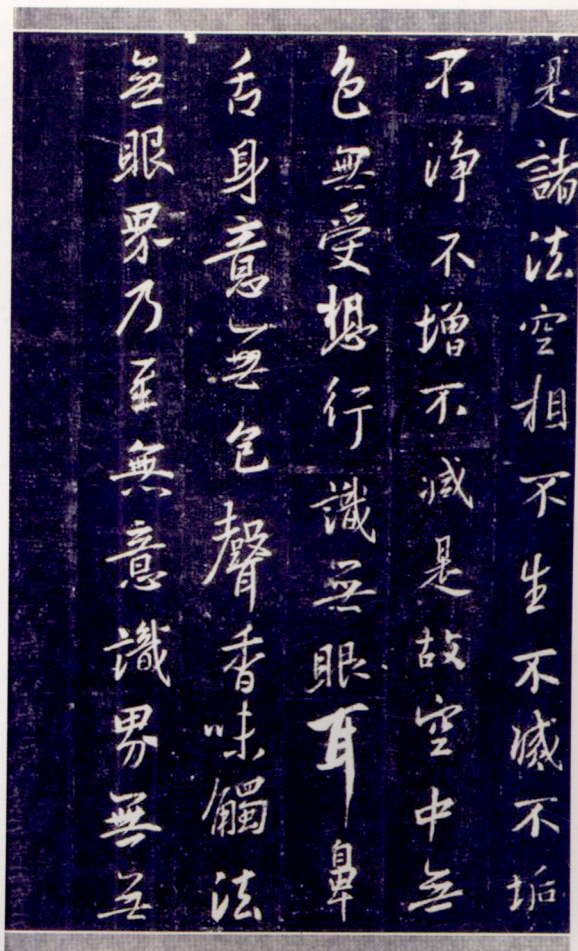 是諸法空相不生不滅不垢
不淨不增不減是故空中無
色無受想行識無眼耳鼻
舌身意無色聲香味觸法
無眼界乃至無意識界無無